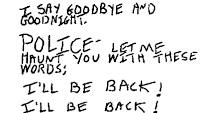 I SAY GOODBYE AND
GOODNIGHT.
POLICE- LET ME
HAUNT YOU WITH THESE
WORDS;
I'LL BE BACK!
I'LL BE BACK!